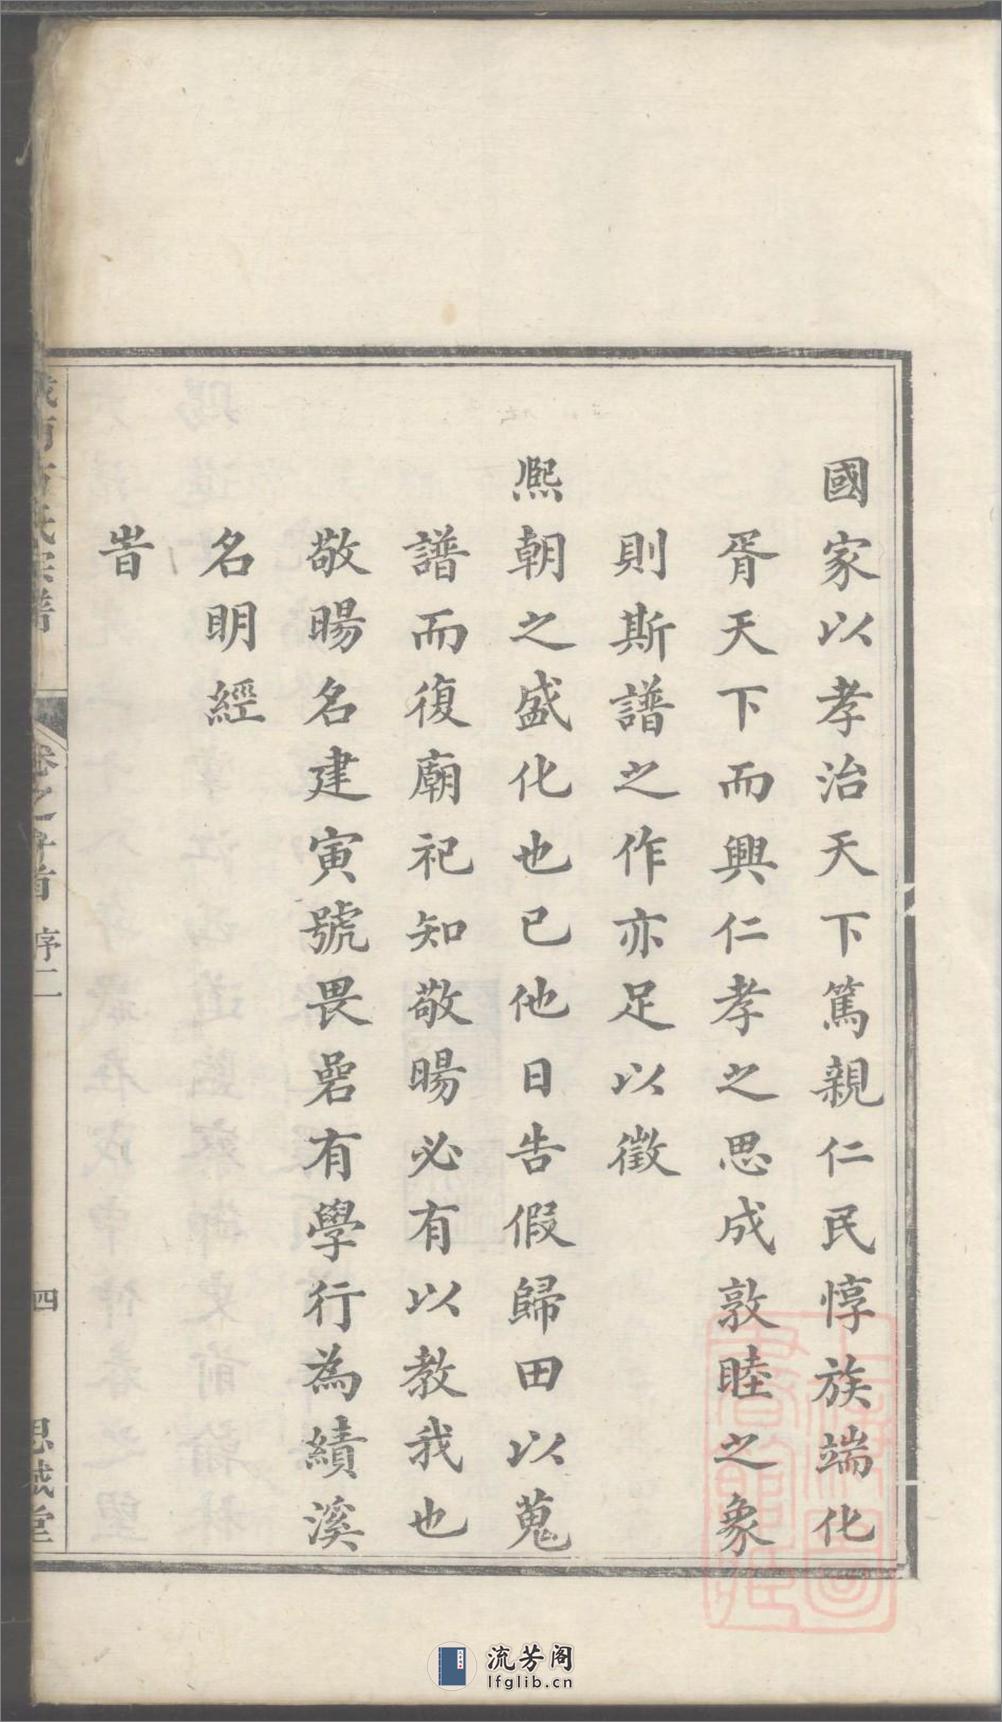 國家以孝治天下篤親仁民惇族端化
胥天下而興仁孝之思成敦睦之象
則斯譜之作亦足以徵
熙朝之盛化也已他日告假歸田以蒐
譜而復廟祀知敬暘必有以教我也
敬暘名建寅號畏礐有學行為績溪
名明經
旹
氏宗譜
卷之首 序二
四
思誠堂
流芳阁
lfglib.cn